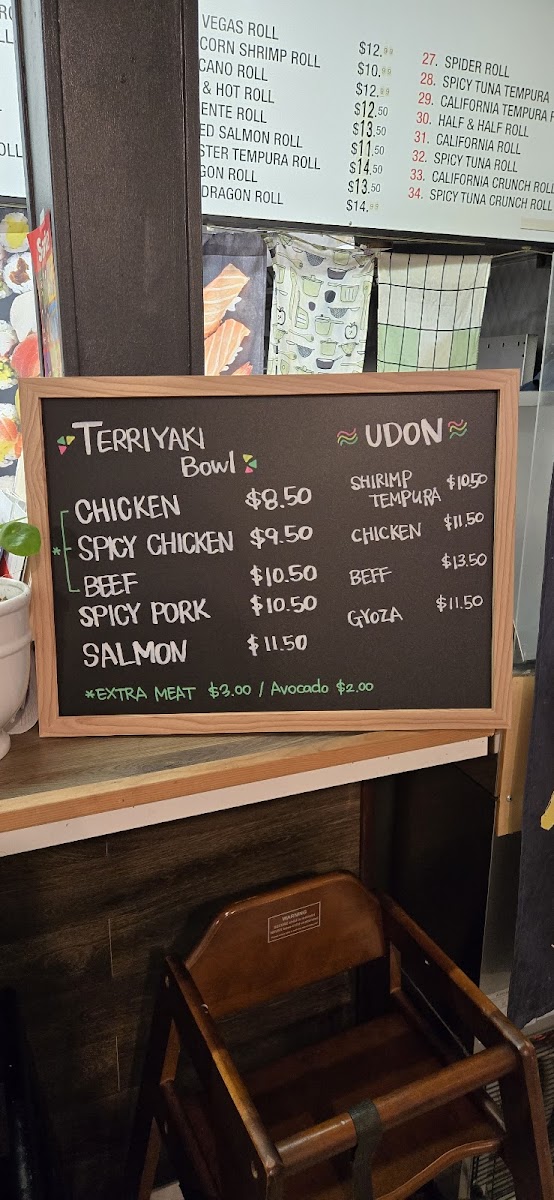 VEGAS ROLL
CORN SHRIMP ROLL $12.99
CANO ROLL $10.99
& HOT ROLL $12.99
ENTE ROLL $12.50
ED SALMON ROLL $13.50
STER TEMPURA ROLL $11.50
GON ROLL $14.50
DRAGON ROLL $13.50
$14.99
27. SPIDER ROLL
28. SPICY TUNA TEMPURA
29. CALIFORNIA TEMPURA
30. HALF & HALF ROLL
31. CALIFORNIA ROLL
32. SPICY TUNA ROLL
33. CALIFORNIA CRUNCH ROLL
34. SPICY TUNA CRUNCH ROLL
TERRIYAKI
BOWL
CHICKEN $8.50
* SPICY CHICKEN $9.50
BEEF $10.50
SPICY PORK $10.50
SALMON $11.50
UDON
SHIRIMP
TEMPURA $10.50
CHICKEN $11.50
BEFF $13.50
GYOZA $11.50
*EXTRA MEAT $3.00 / Avocado $2.00
WARNING